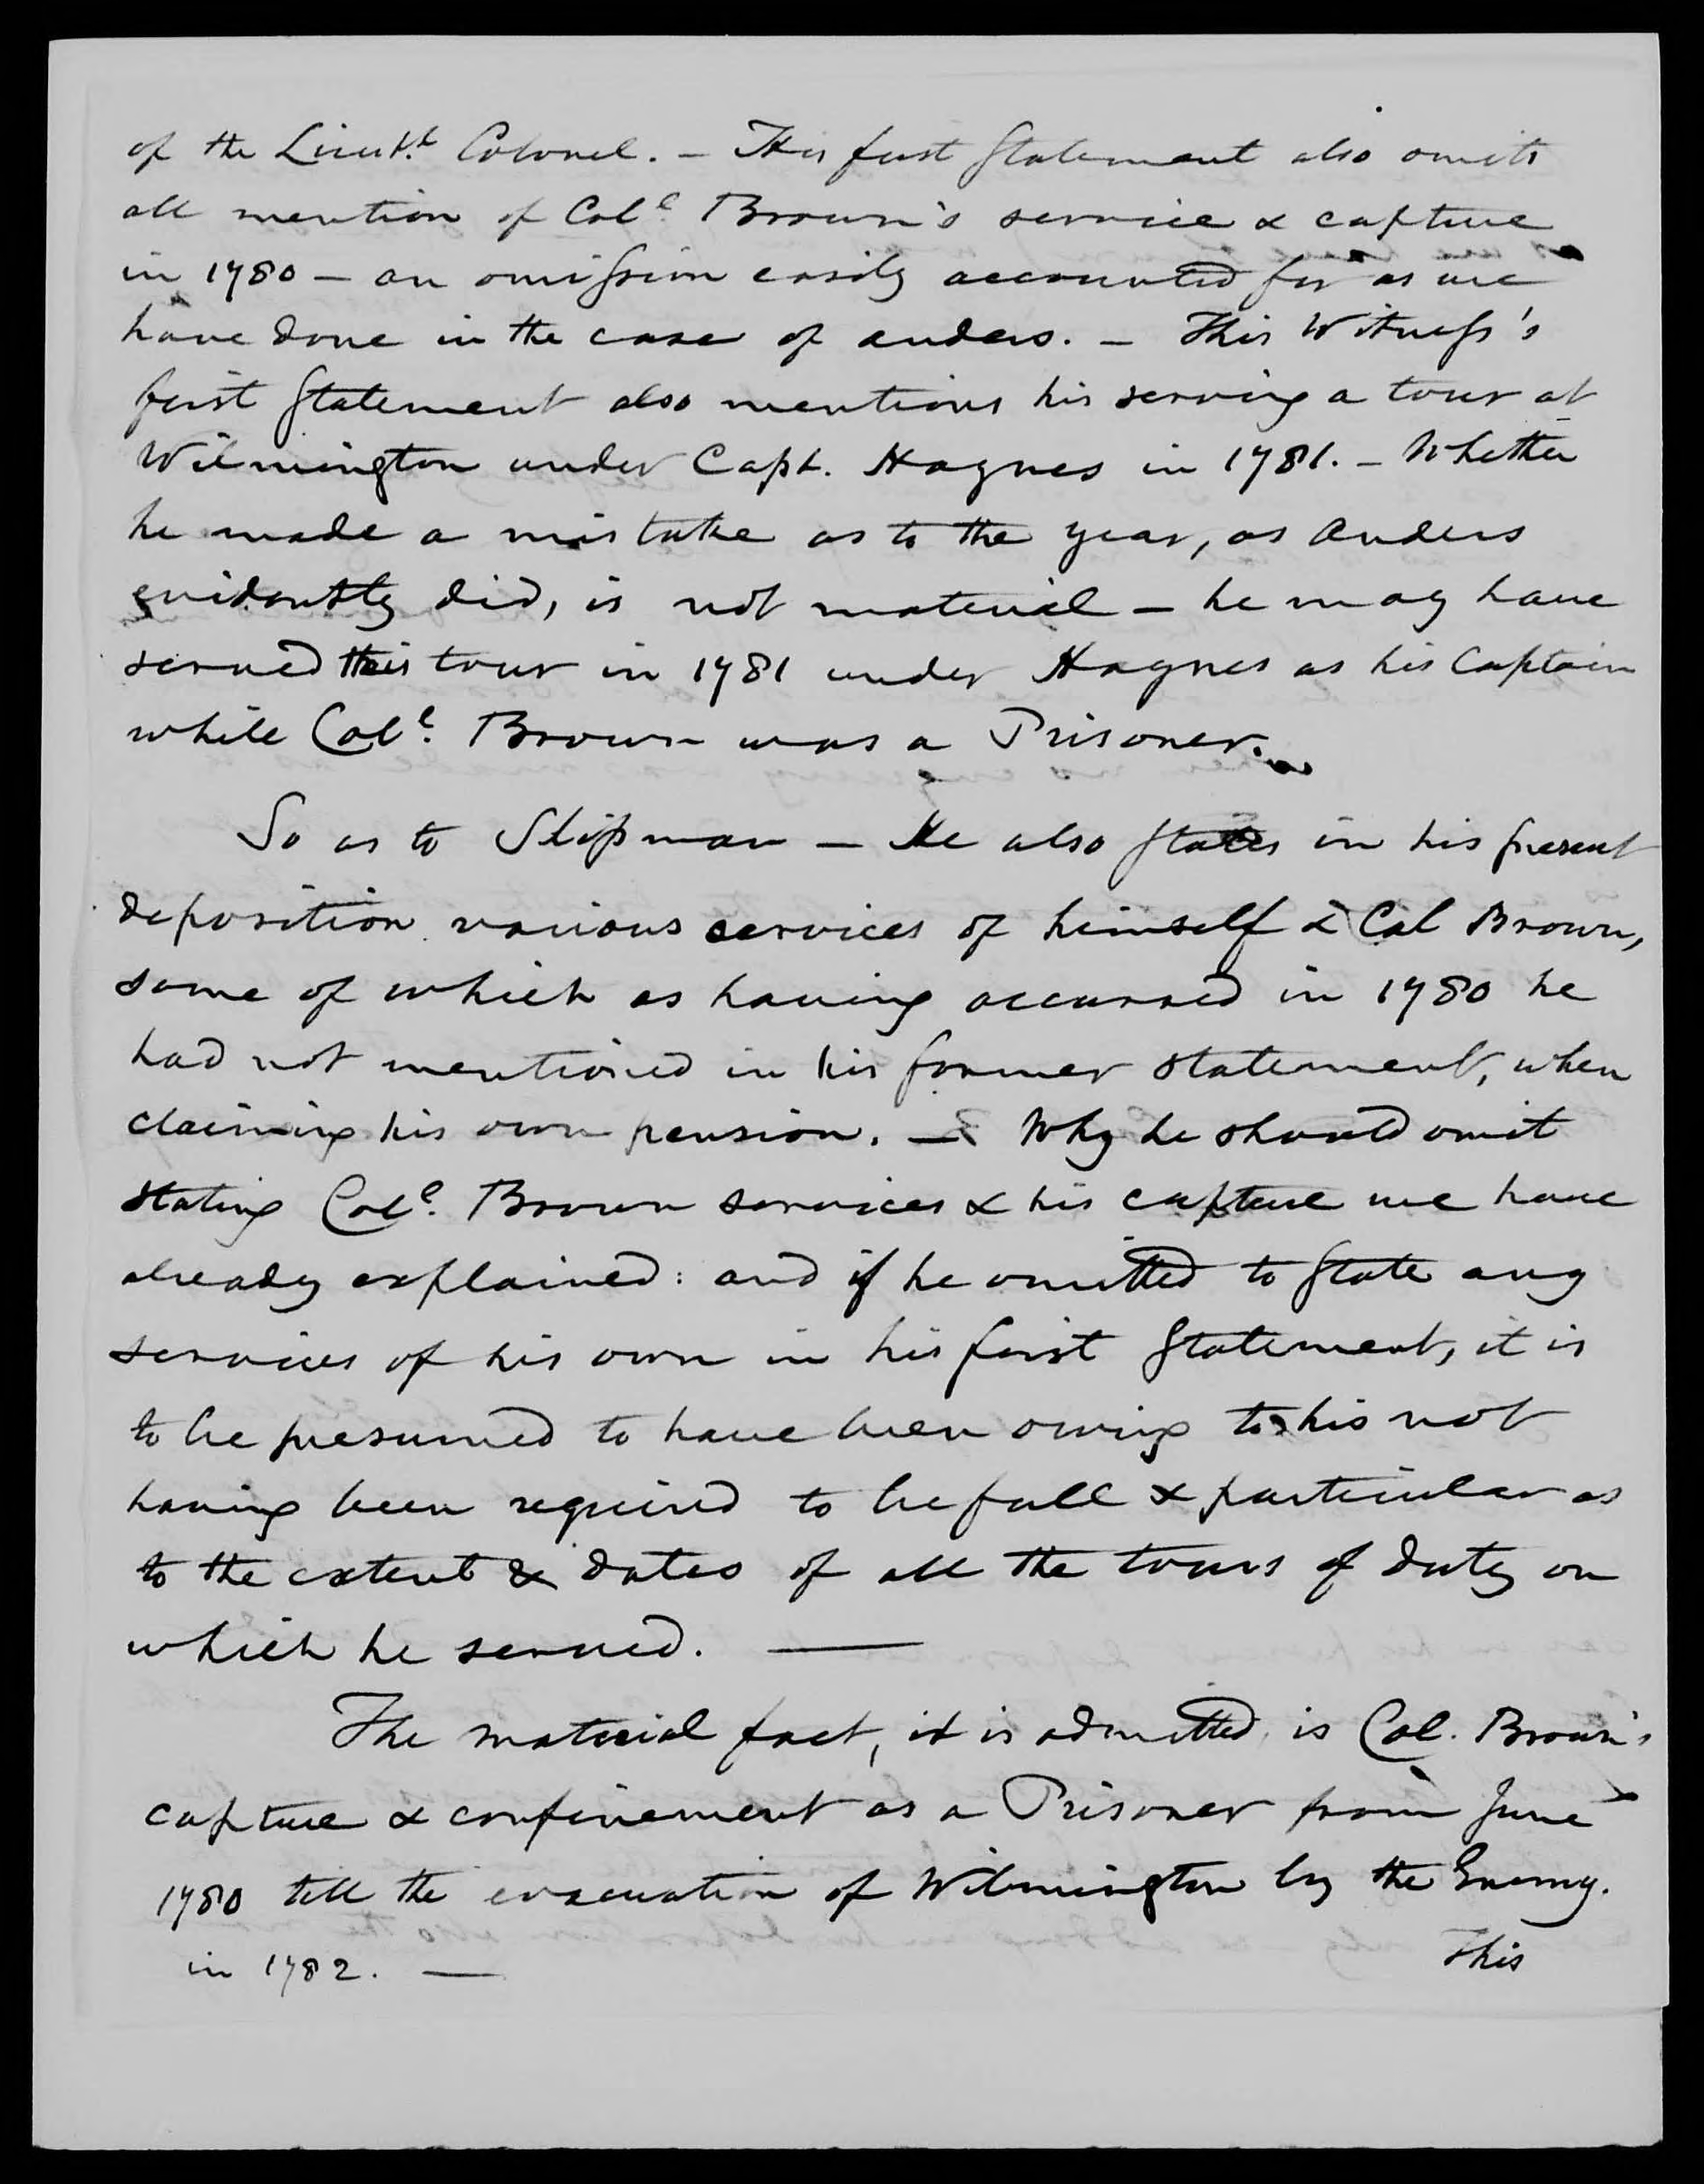 of the Lieut.t Colonel. — His first Statement also omits
all mention of Col.l Brown's service & capture
in 1780 — an omission easily accounted for as we
have done in the case of anders. — This Witness's
first Statement also mentions his serving a tour at
Wilmington under Capt. Haynes in 1781. — Whether
he made a mistake as to the year, as Anders
evidently did, is not material — he may have
served this tour in 1781 under Haynes as his Captain
while Col.l Brown was a Prisoner.
So as to Slipman — He also States in his present
deposition various services of himself & Col Brown,
some of which as having occurred in 1780 he
had not mentioned in his former statement, when
claiming his own pension. — Why he should omit
stating Col.l Brown services & his capture we have
already explained: and if he omitted to State any
services of his own in his first Statement, it is
to be presumed to have been owing to his not
having been required to be full & particular as
to the extent & dates of all the tours of duty on
which he served. —
The material fact, it is admitted, is Col. Brown's
capture & confinement as a Prisoner from June
1780 till the evacuation of Wilmington by the Enemy.
in 1782. —
This